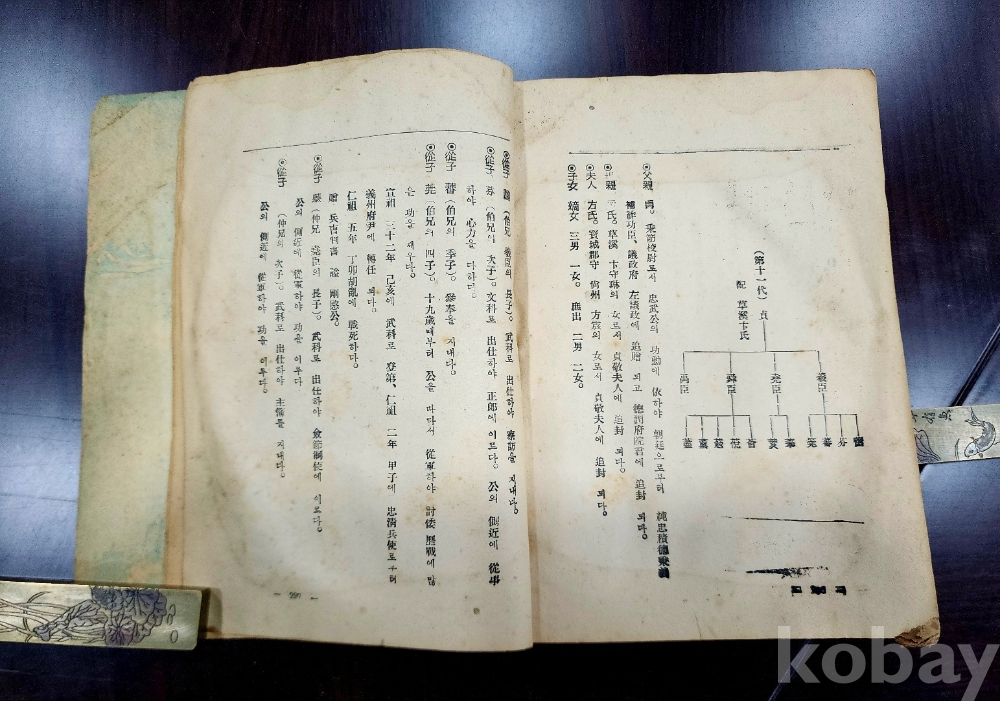 (第十一代) 貞
配 草溪卞氏
羲臣
堯臣
舜臣
禹臣
芬
蕃
莞
⦿父親 貞。秉節校尉로서 忠武公의 功勳에 依하야 朝廷으로부터 純忠積德秉義
補祚功臣、議政府 左議政에 追贈 되고 德淵府院君에 追封 되다。
氏。草溪 卞守琳의 女로서 貞敬夫人에 追封 되다。
⦿夫人 方氏。寶城郡守 尙州 方震의 女로서 貞敬夫人에 追封 되다。
⦿子女 嫡女 三男 一女。庶出 二男 二女。
⦿從子 (伯兄 羲臣의 長子)。武科로 出仕하야 察訪을 지내다。
⦿從子 芬 (伯兄의 次子)。文科로 出仕하야 正郎에 이르다。公의 側近에 從事
하야 心力을 다하다。
⦿從子 蕃 (伯兄의 季子)。參奉을 지내다。
⦿從子 莞 (伯兄의 四子)。十九歲때부터 公을 따라서 從軍하야 討倭 歷戰에 많
은 功을 세우다。
宣祖 三十二年 己亥에 武科로 登第、仁祖 二年 甲子에 忠淸兵使로부터
義州府尹에 轉任 되다。
仁祖 五年 丁卯胡亂에 戰死하다。
贈 兵曹判書 諡 剛愍公。
⦿從子 (仲兄 堯臣의 長子)。武科로 出仕하야 僉節制使에 이르다。
公의 側近에 從軍하야 功을 이루다
⦿從子 (仲兄의 次子)。武科로 出仕하야 主簿를 지내다。
公의 側近에 從軍하야 功을 이루다。
kobay